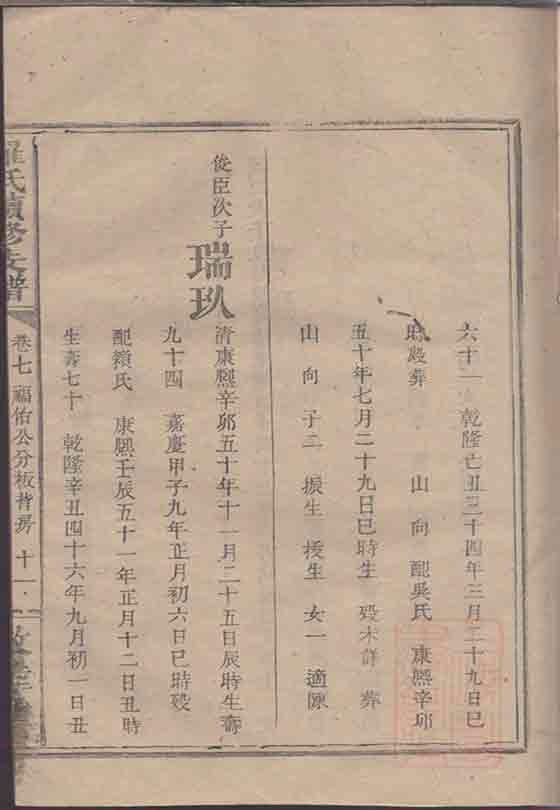 六十一 乾隆亡丑三十四年三月二十九日巳
時 葬 山 向 配吳氏 康熙辛卯
五十年七月二十九日巳時生 歿未詳 葬
山 向 子二 振生 授生 女一 適陳
俊臣次子
瑞玖
清康熙辛卯五十年十一月二十五日辰時生壽
九十四 嘉慶甲子九年正月初六日巳時歿
配 氏 康熙壬辰五十一年正月十二日丑時
生壽七十 乾隆辛丑四十六年九月初一日丑
羅氏續修支譜
卷七 福佑公分板背房 十一